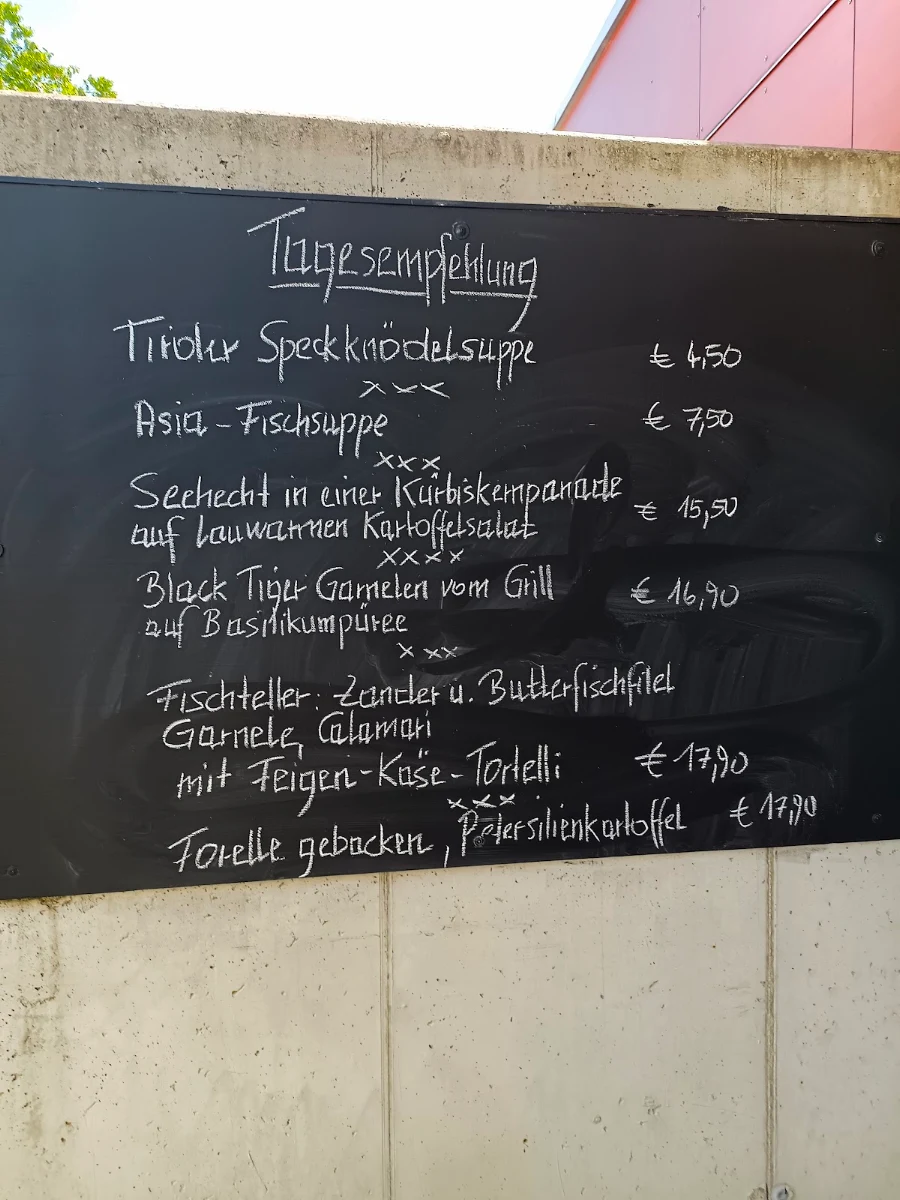 Tagesempfehlung
Tiroler Speckknödelsuppe € 4,50
xxx
Asia-Fischsuppe € 7,50
xxx
Seehecht in einer Kürbiskernpanade
auf lauwarmen Kartoffelsalat € 15,50
xxxx
Black Tiger Garnelen vom Grill € 16,90
auf Basilikumpüree
xxx
Fischteller: Zander u. Butterfischfilet
Garnele, Calamari
mit Feigen-Käse-Tortelli € 17,90
xxx
Forelle gebacken, Petersilienkartoffel € 17,90